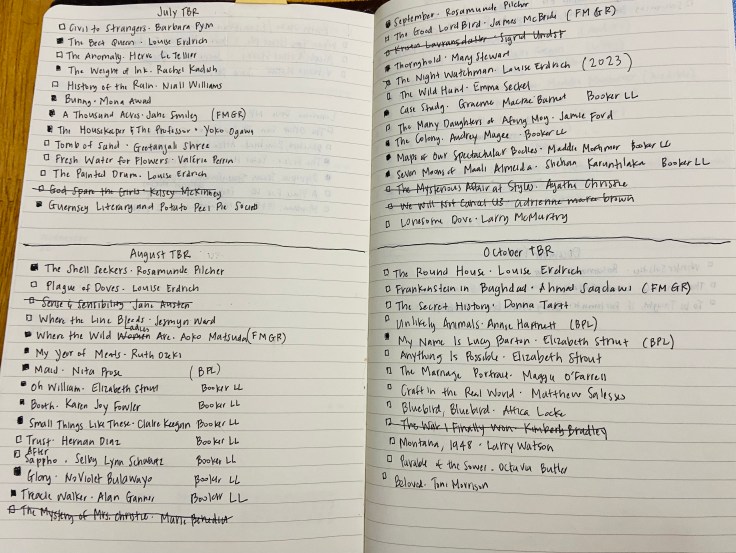 July TBR
Civil to Strangers. Barbara Pym
The Beet Queen. Louise Erdrich
The Anomaly. Herve Le Tellier
The Weight of Ink. Rachel Kadish
History of the Rain. Niall Williams
Bunny. Mona Awad
A Thousand Acres. Jane Smiley (FMGR)
The Housekeeper & The Professor. Yoko Ogawa
Tomb of Sand. Geetanjali Shree
Fresh Water for Flowers. Valérie Perrin
The Painted Drum. Louise Erdrich
God Spare the Girls. Kelsey McKinney
Guernsey Literary and Potato Peel Pie Society
August TBR
The Shell Seekers. Rosamunde Pilcher
Plague of Doves. Louise Erdrich
Sense & Sensibility Jane Austen
Where the Line Bleeds. Jesmyn Ward
Where the Wild Women Ladies Are. Aoko Matsuda (FMGR)
My Year of Meats. Ruth Ozeki
Maid. Nita Prose (BPL)
Oh William. Elizabeth Strout Booker LL
Booth. Karen Joy Fowler Booker LL
Small Things Like These. Claire Keegan Booker LL
Trust. Hernan Diaz Booker LL
After Sappho. Selby Lynn Schwartz Booker LL
Glory. NoViolet Bulawayo Booker LL
Treacle Walker. Alan Garner Booker LL
The Mystery of Mrs. Christie. Marie Benedict
September. Rosamunde Pilcher
The Good Lord Bird. James McBride (FMGR)
Kristin Lavransdatter. Sigrid Undset
Thornyhold. Mary Stewart
The Night Watchman. Louise Erdrich (2023)
The Wild Hunt. Emma Seckel
Case Study. Graeme Macrae Burnet Booker LL
The Many Daughters of Afong Moy. Jamie Ford
The Colony. Audrey Magee. Booker LL
Maps of Our Spectacular Bodies. Maddie Mortimer Booker LL
Seven Moons of Maali Almeida. Shehan Karunatilaka Booker LL
The Mysterious Affair at Styles. Agatha Christie
We Will Not Cancel Us. adrienne maree brown
Lonesome Dove. Larry McMurtry
October TBR
The Round House. Louise Erdrich
Frankenstein in Baghdad. Ahmed Saadawi (FMGR)
The Secret History. Donna Tartt
Unlikely Animals. Annie Hartnett (BPL)
My Name Is Lucy Barton. Elizabeth Strout (BPL)
Anything Is Possible. Elizabeth Strout
The Marriage Portrait. Maggie O'Farrell
Craft in the Real World. Matthew Salesses
Bluebird, Bluebird. Attica Locke
The War I Finally Won. Kimberly Bradley
Montana, 1948. Larry Watson
Parable of the Sower. Octavia Butler
Beloved. Toni Morrison